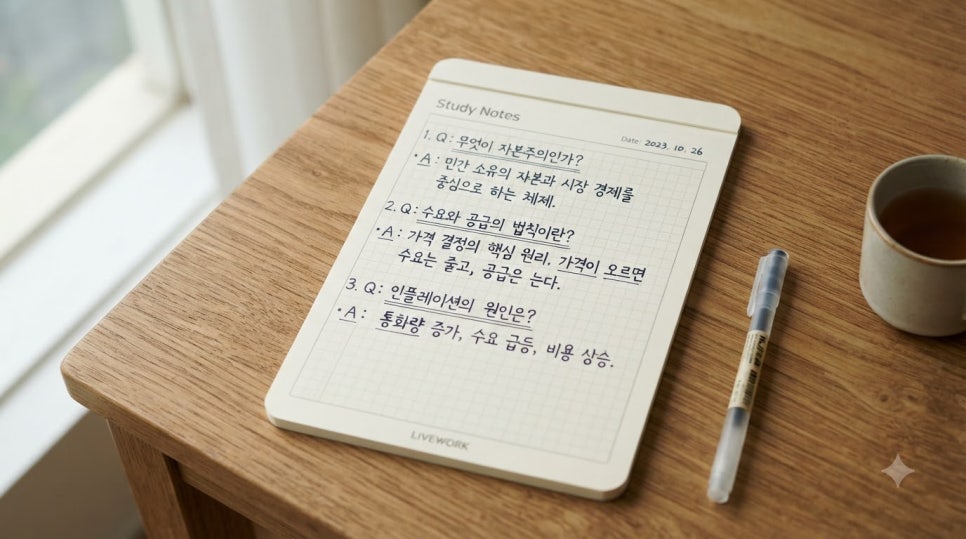 Study Notes
Date: 2023. 10. 26
1. Q: 무엇이 자본주의인가?
• A: 민간 소유의 자본과 시장 경제를
중심으로 하는 체제.
2. Q: 수요와 공급의 법칙이란?
• A: 가격 결정의 핵심 원리. 가격이 오르면
수요는 줄고, 공급은 는다.
3. Q: 인플레이션의 원인은?
• A: 통화량 증가, 수요 급등, 비용 상승.
LIVEWORK